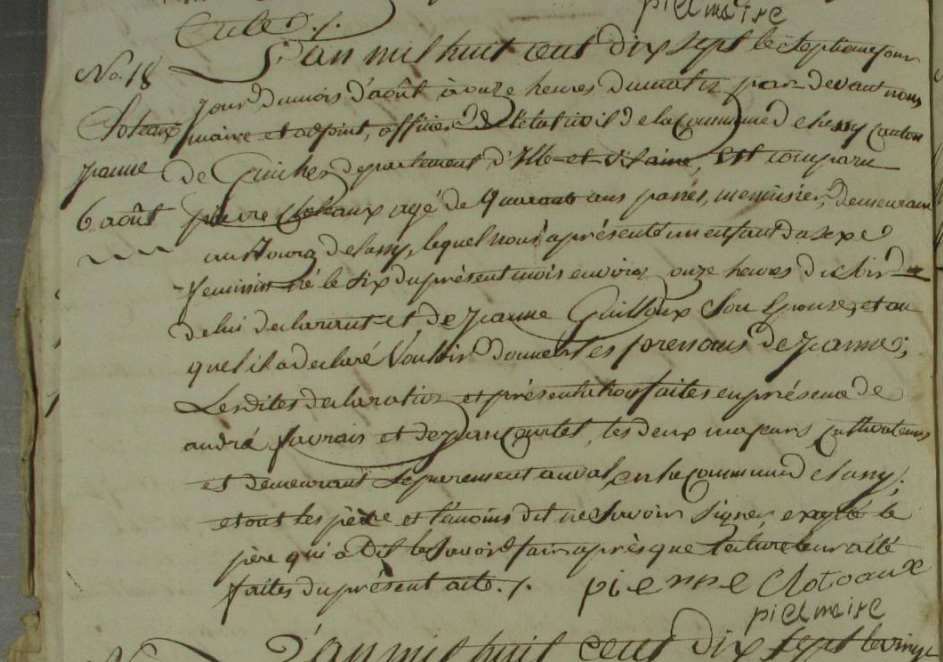 piel maire
acte ./.
No. 18
Cloteaux
Jeanne
6 août
L'an mil huit cent dix sept le septieme jour
jour du mois d'août à onze heures du matin par devant nous
maire et adjoint, officier de l'état civil de la Commune de lassy Canton
de Guichen departement d'Ille et Vilaine, est comparu
pierre Cloteaux agé de quarante ans passés, menuisier, demeurant
au Bourg de lassy, lequel nous a présenté un enfant du sexe
feminin né le six du présent mois environ onze heures du soir
de lui declarant et de Jeanne Guilloux Son Epouse, et au
quel il a declaré Vouloir donner les prenoms de Jeanne;
Lesdites declaration et présentation faites en présence de
andré et de jean les deux majeurs Cultivateurs
et demeurant Séparement au val, en la commune de lassy;
et ont les père et témoins dit ne Savoir Signer, excepté le
père qui a dit le Savoir faire après que lecture leur a été
faites du présent acte ./.
pierre Clotoaux
piel maire
L'an mil huit cent dix sept le vingt